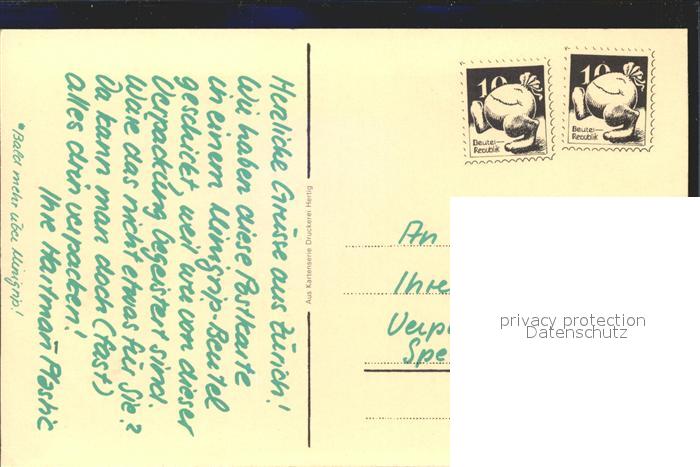 Herzliche Grüsse aus Zürich!
Wir haben diese Postkarte
in einem Minigrip-Beutel
geschickt, weil wir von dieser
Verpackung begeistert sind.
Wäre das nicht etwas für Sie?
Da kann man doch (fast)
alles drin verpacken!
Ihre Hartmann Plastic
*Bald mehr über Minigrip!
Aus Kartenserie Druckerei Hertig
10
Beutel-
Republik
10
Beutel-
Republik
An
Ihre
Verp
Spe
privacy protection
Datenschutz